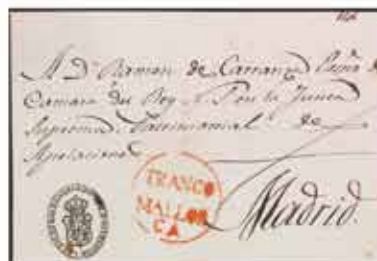 A Dⁿ Ramon de Carranza
Camara del Rey y Por la Junta
Suprema Patrimonial de
Apelaciones
FRANCO
MALLOR
CA
Madrid.